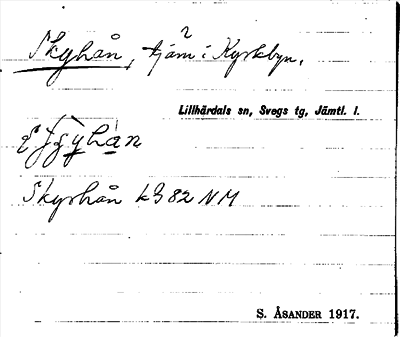 Skyhån, tjärn i Kyrkbyn.
Lillhärdals sn, Svegs tg, Jämtl. l.
Skyrhån k 382 NM
S. ÅSANDER 1917.